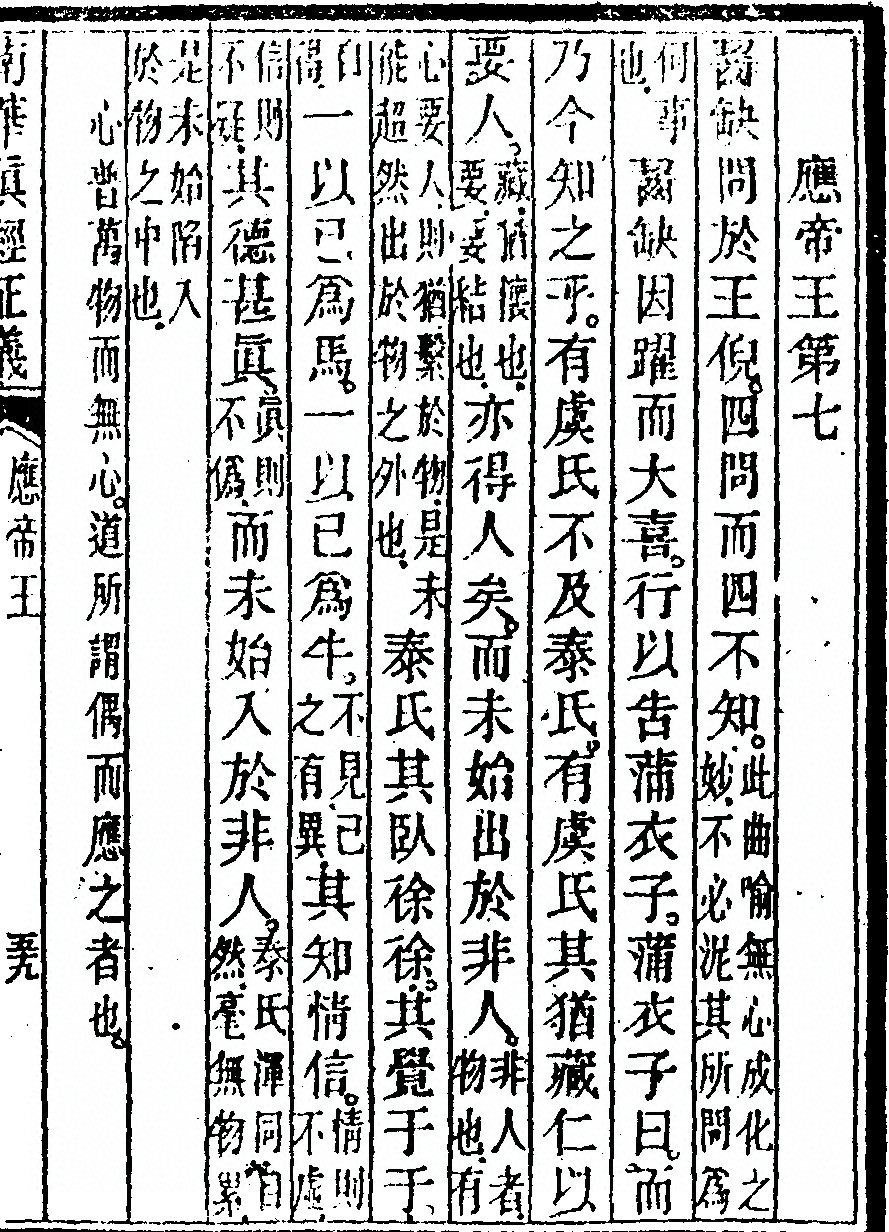 應帝王第七
齧缺問於王倪。四問而四不知。此曲喻無心成化之妙。不必泥其所問爲
何事也。齧缺因躍而大喜。行以告蒲衣子。蒲衣子曰。而
乃今知之乎。有虞氏不及泰氏。有虞氏其猶藏仁以
要人。藏。猶懷也。要。要結也。亦得人矣。而未始出於非人。非人者。物也。有
心要人。則猶繫於物。是未能超然出於物之外也。泰氏其臥徐徐。其覺于于。
一以己爲馬。一以己爲牛。不見己之有異。其知情信。情則不虛。
信則不疑。其德甚眞。眞則不僞。而未始入於非人。泰氏渾同自然。毫無物累。
是未始陷入於物之中也。
心普萬物而無心。道所謂偶而應之者也。
南華眞經正義 應帝王